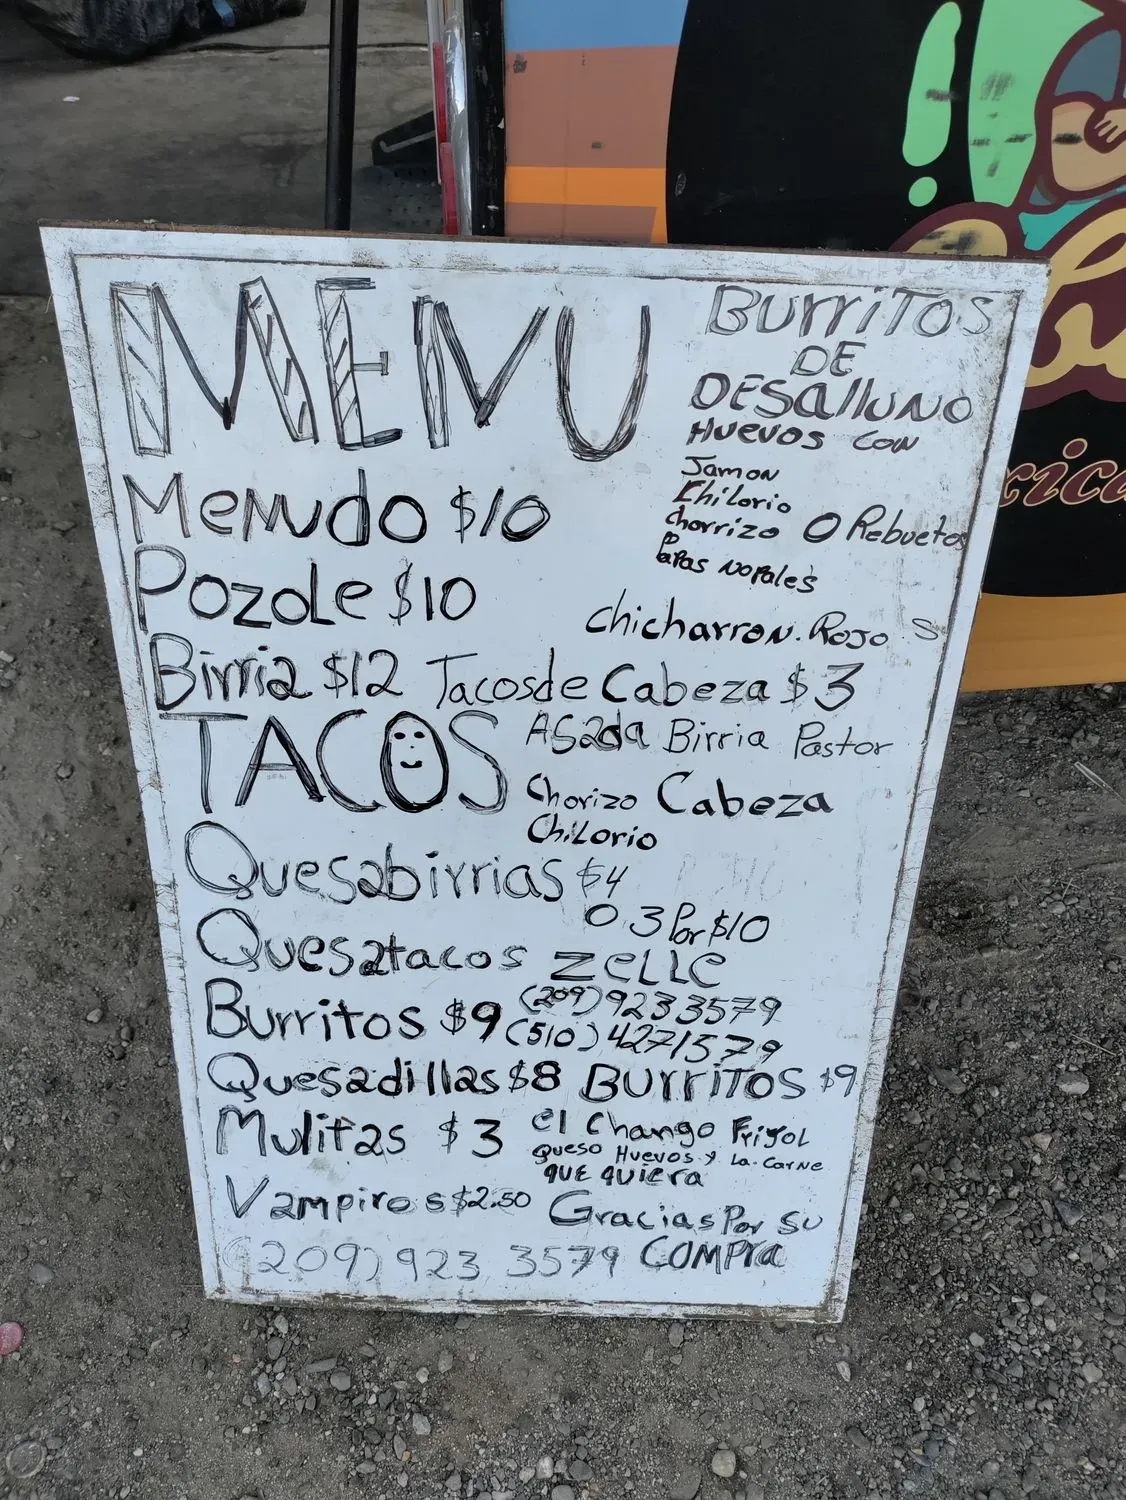 MENU
BURRITOS
DE
DESAllUNO
HUEVOS CON
JAMON
CHILORIO
Chorrizo O Rebuetos
PAPAS NOPALES
Chicharron. Rojo S
Menudo $10
Pozole $10
Birria $12 Tacosde Cabeza $3
TACOS
Asada Birria Pastor
Chorizo Cabeza
Chilorio
Quesabirrias $4
O 3 Por $10
Quesatacos ZELLE
(209) 923 3579
Burritos $9 (510) 4271579
Quesadillas $8 BURRITOS $9
Mulitas $3 el Chango Frijol
QUESO HUEVOS Y LA. CARNE
QUE QUIERA
Vampiros $2.50 Gracias Por SU
(209) 923 3579 COMPRA
rica